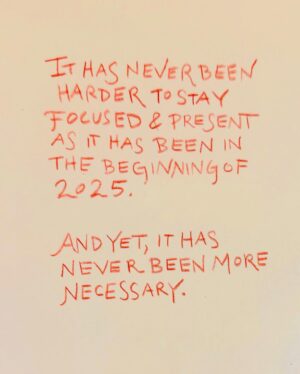 IT HAS NEVER BEEN
HARDER TO STAY
FOCUSED & PRESENT
AS IT HAS BEEN IN
THE BEGINNING OF
2025.
AND YET, IT HAS
NEVER BEEN MORE
NECESSARY.